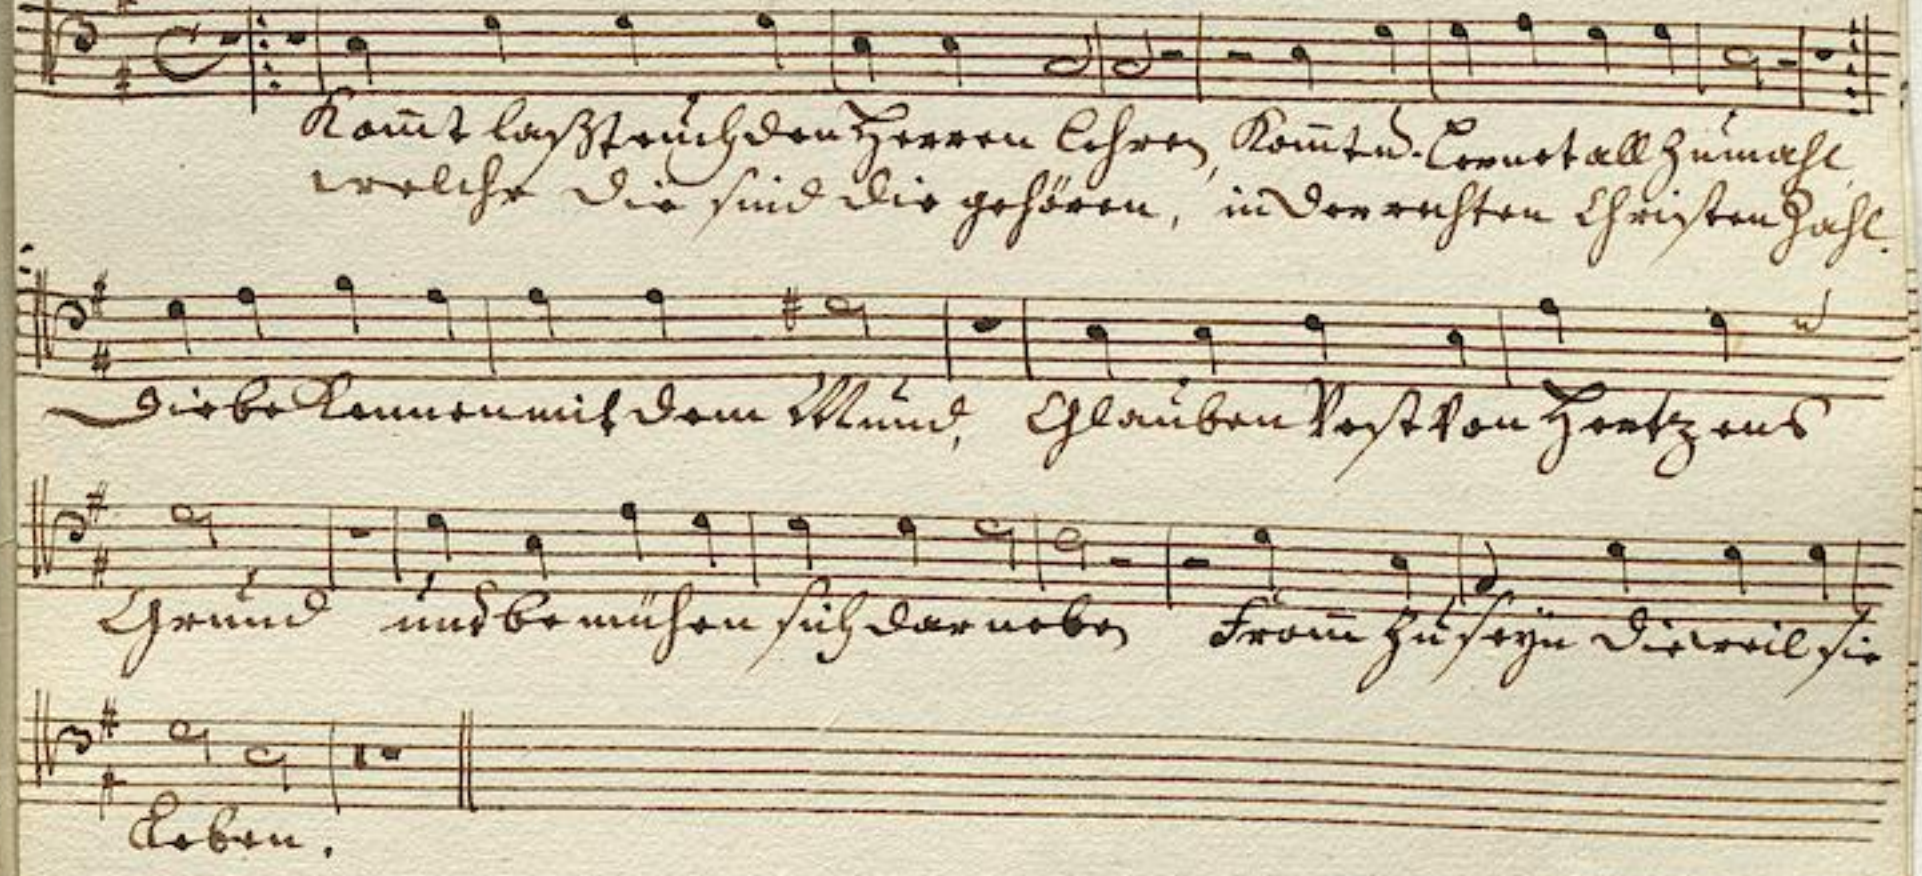 Kom̄t laßt euch den Herren lehren, Kom̄t u. lernet all zumahl,
welche die sind die gehören, in der rechten Christen Zahl.
die bekennen mit dem Mund, Glauben Vest Von Hertzens
Grund und bemühen sich darneben From̄ zu seyn dieweil sie
Leben.